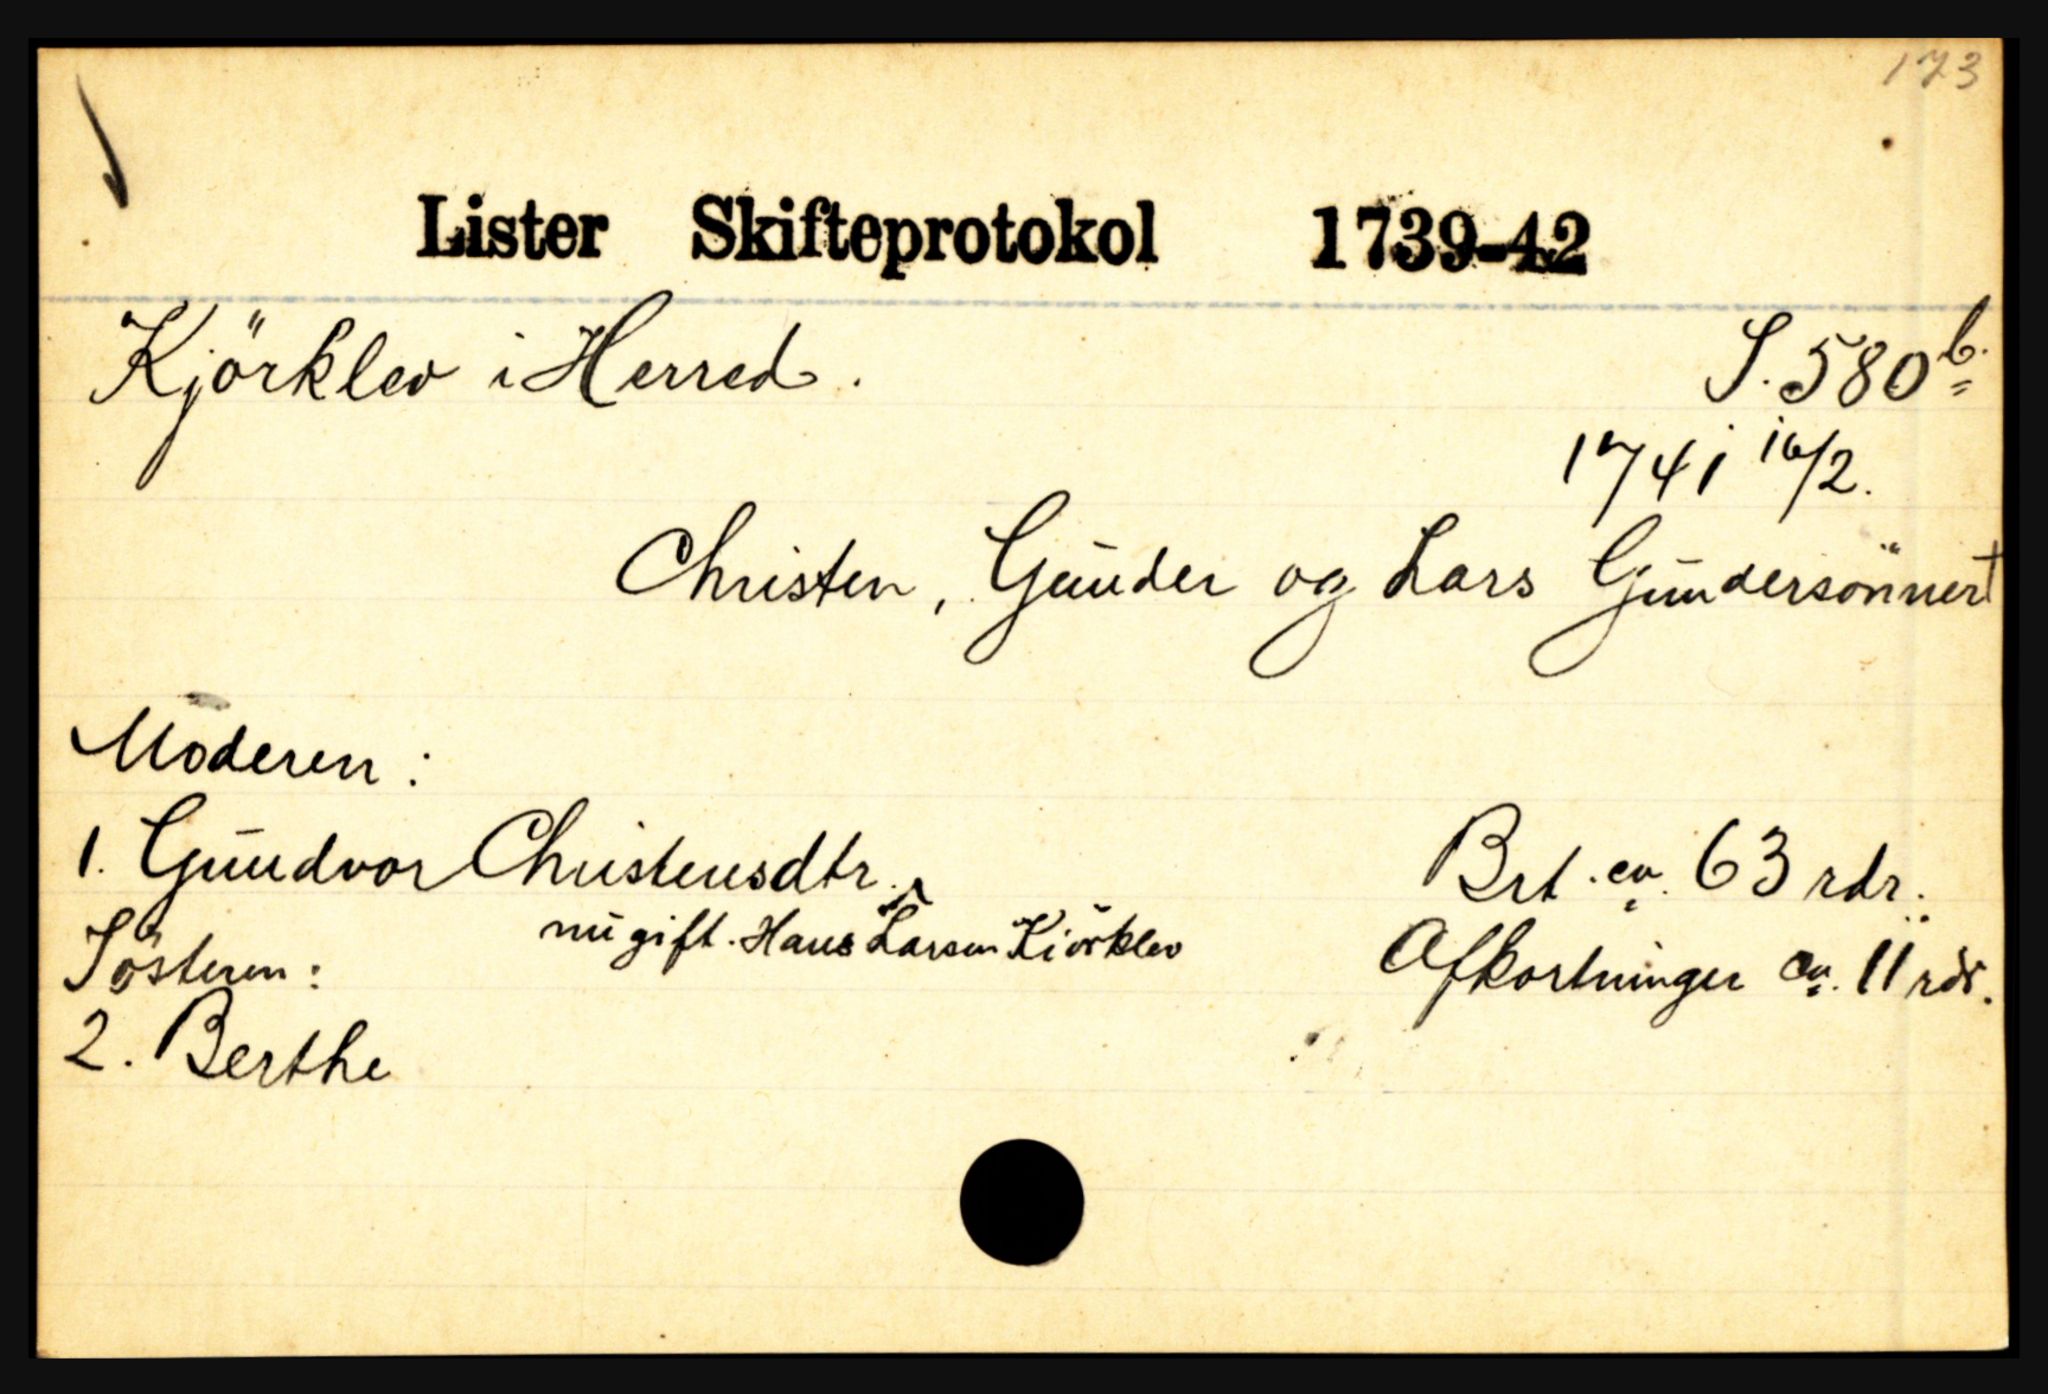 173
Lister Skifteprotokol 1739-42
Kjörklev i Herred. S. 580 b.
1741 16/2.
Christen, Gunder og Lars Gundersönner †
Moderen:
1. Gundvor Christensdtr.
nu gift. Hans Larsen Kiörklev
Brt. ca. 63 rdr.
Søsteren:
Afkortninger ca. 11 rdr.
2. Berthe